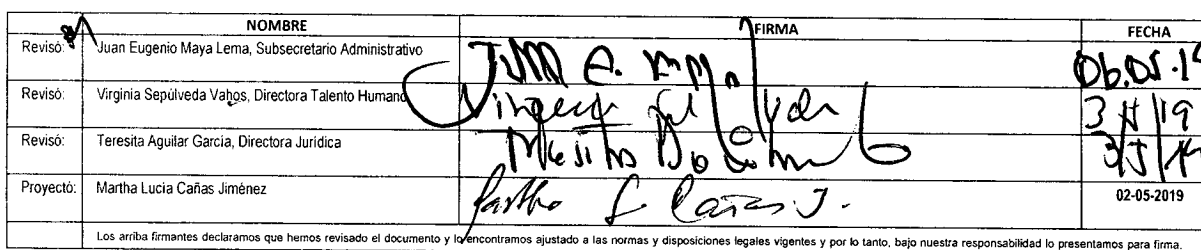 NOMBRE FIRMA FECHA
Revisó: Juan Eugenio Maya Lema, Subsecretario Administrativo Juan E. Maya L 06.05.19
Revisó: Virginia Sepúlveda Vahos, Directora Talento Humano Virginia 3 19
Revisó: Teresita Aguilar García, Directora Jurídica 3
Proyectó: Martha Lucia Cañas Jiménez Martha L Cañas J. 02-05-2019
Los arriba firmantes declaramos que hemos revisado el documento y lo encontramos ajustado a las normas y disposiciones legales vigentes y por lo tanto, bajo nuestra responsabilidad lo presentamos para firma.